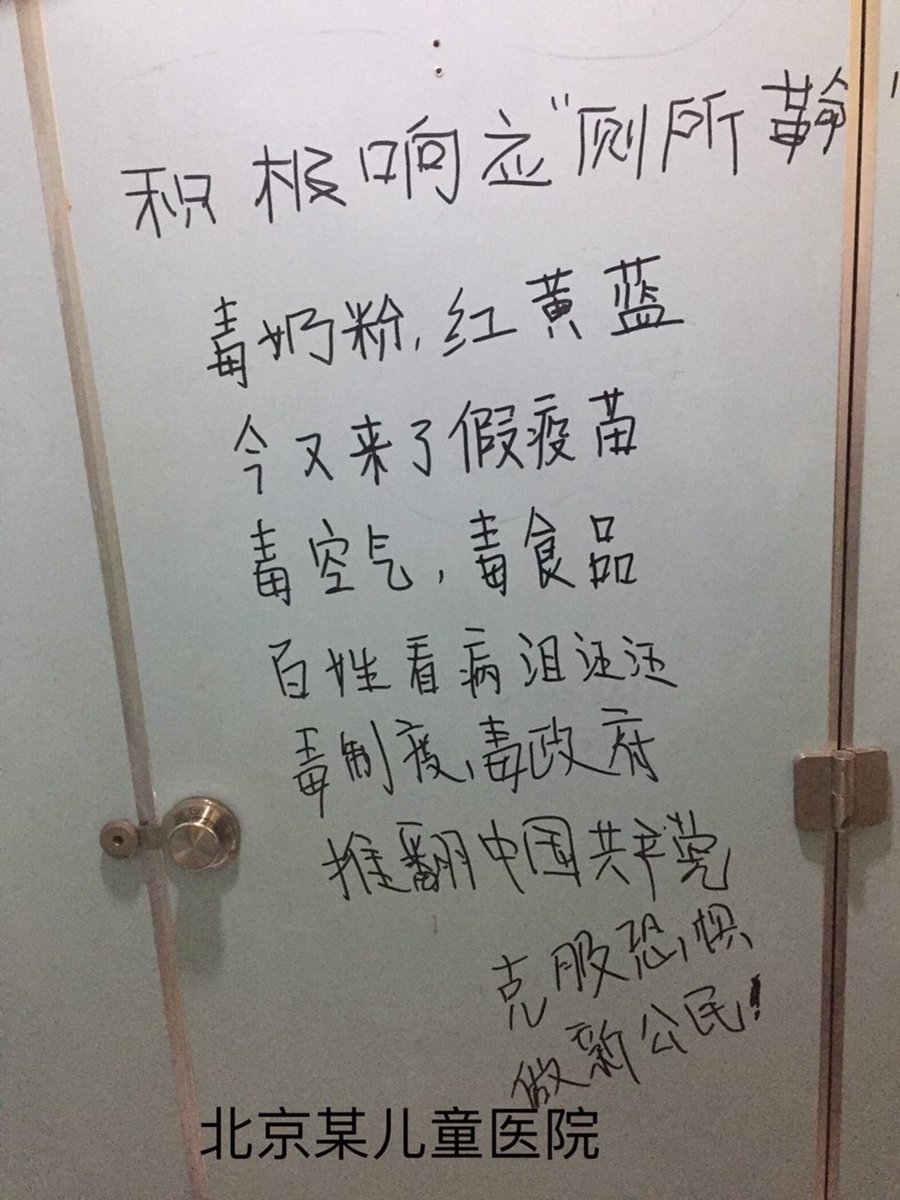 积极响应“厕所革命”
毒奶粉,红黄蓝
今又来了假疫苗
毒空气,毒食品
百姓看病泪汪汪
毒制度,毒政府
推翻中国共产党
克服恐惧
做新公民!
北京某儿童医院